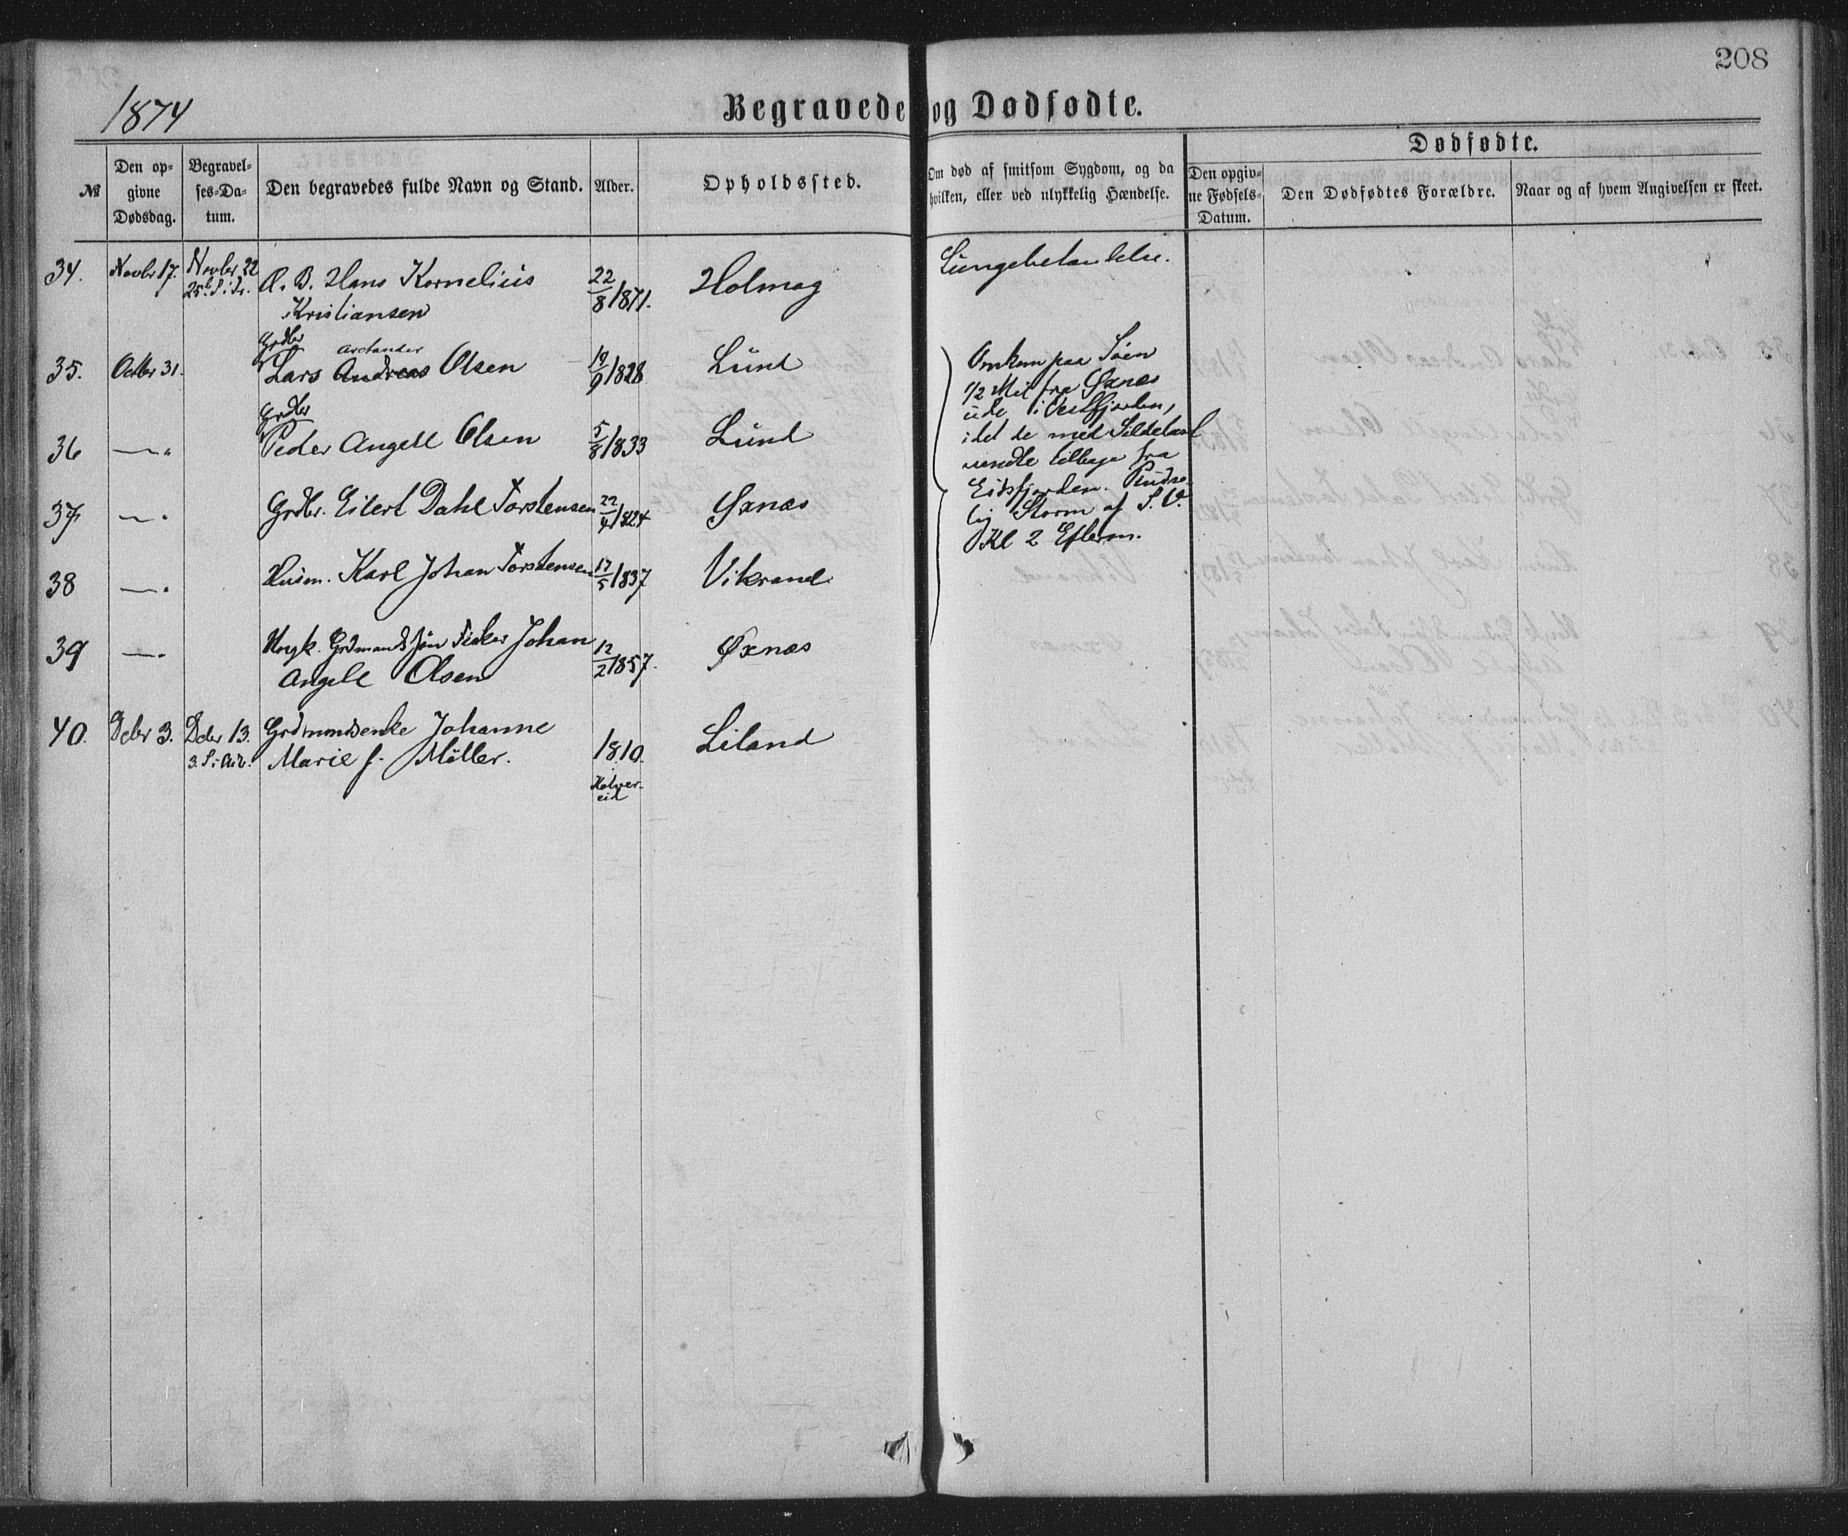 208
1874
Begravede og Dødfødte.
№
Den opgivne Dødsdag.
Begravelses-Datum.
Den begravedes fulde Navn og Stand.
Alder.
Opholdssted.
Om død af smitsom Sygdom, og da
hvilken, eller ved ulykkelig Hændelse.
Dødfødte.
Den opgivne Fødsels-Datum.
Den Dødfødtes Forældre.
Naar og af hvem Angivelsen er skeet.
34. Novbr 17. Novbr 22 B. Hans Kornelius 22/8 1871. Holmag Lungebetændelse.
Kristiansen
Grdbr
Arctander
35. Octbr 31. Lars Andreas Olsen 19/9 1828 Lund
Grdbr
36 —„— Peder Angell Olsen 5/8 1833 Lund
37 —„— Grdbr. Eilert Dahl Torstensen 22/4 1824 Øxnæs
38 —„— Husm. Karl Johan Torstensen 17/5 1837 Vikrand
39 —„— Ungk. Grdmands Søn Fisker Johan 12/2 1857. Øxnæs
Angell Olsen
Omkom paa Søen
1/2 Mil fra Øxnæs
ude i Vestfjorden,
idet de med Sildelast
vendte tilbage fra
Eidsfjorden.
Storm af S.V.
Kl 2 Efterm.
40. Dcbr 3. Dcbr 13. Grdmandsenke Johanne 1810. Liland
Marie f. Möller.